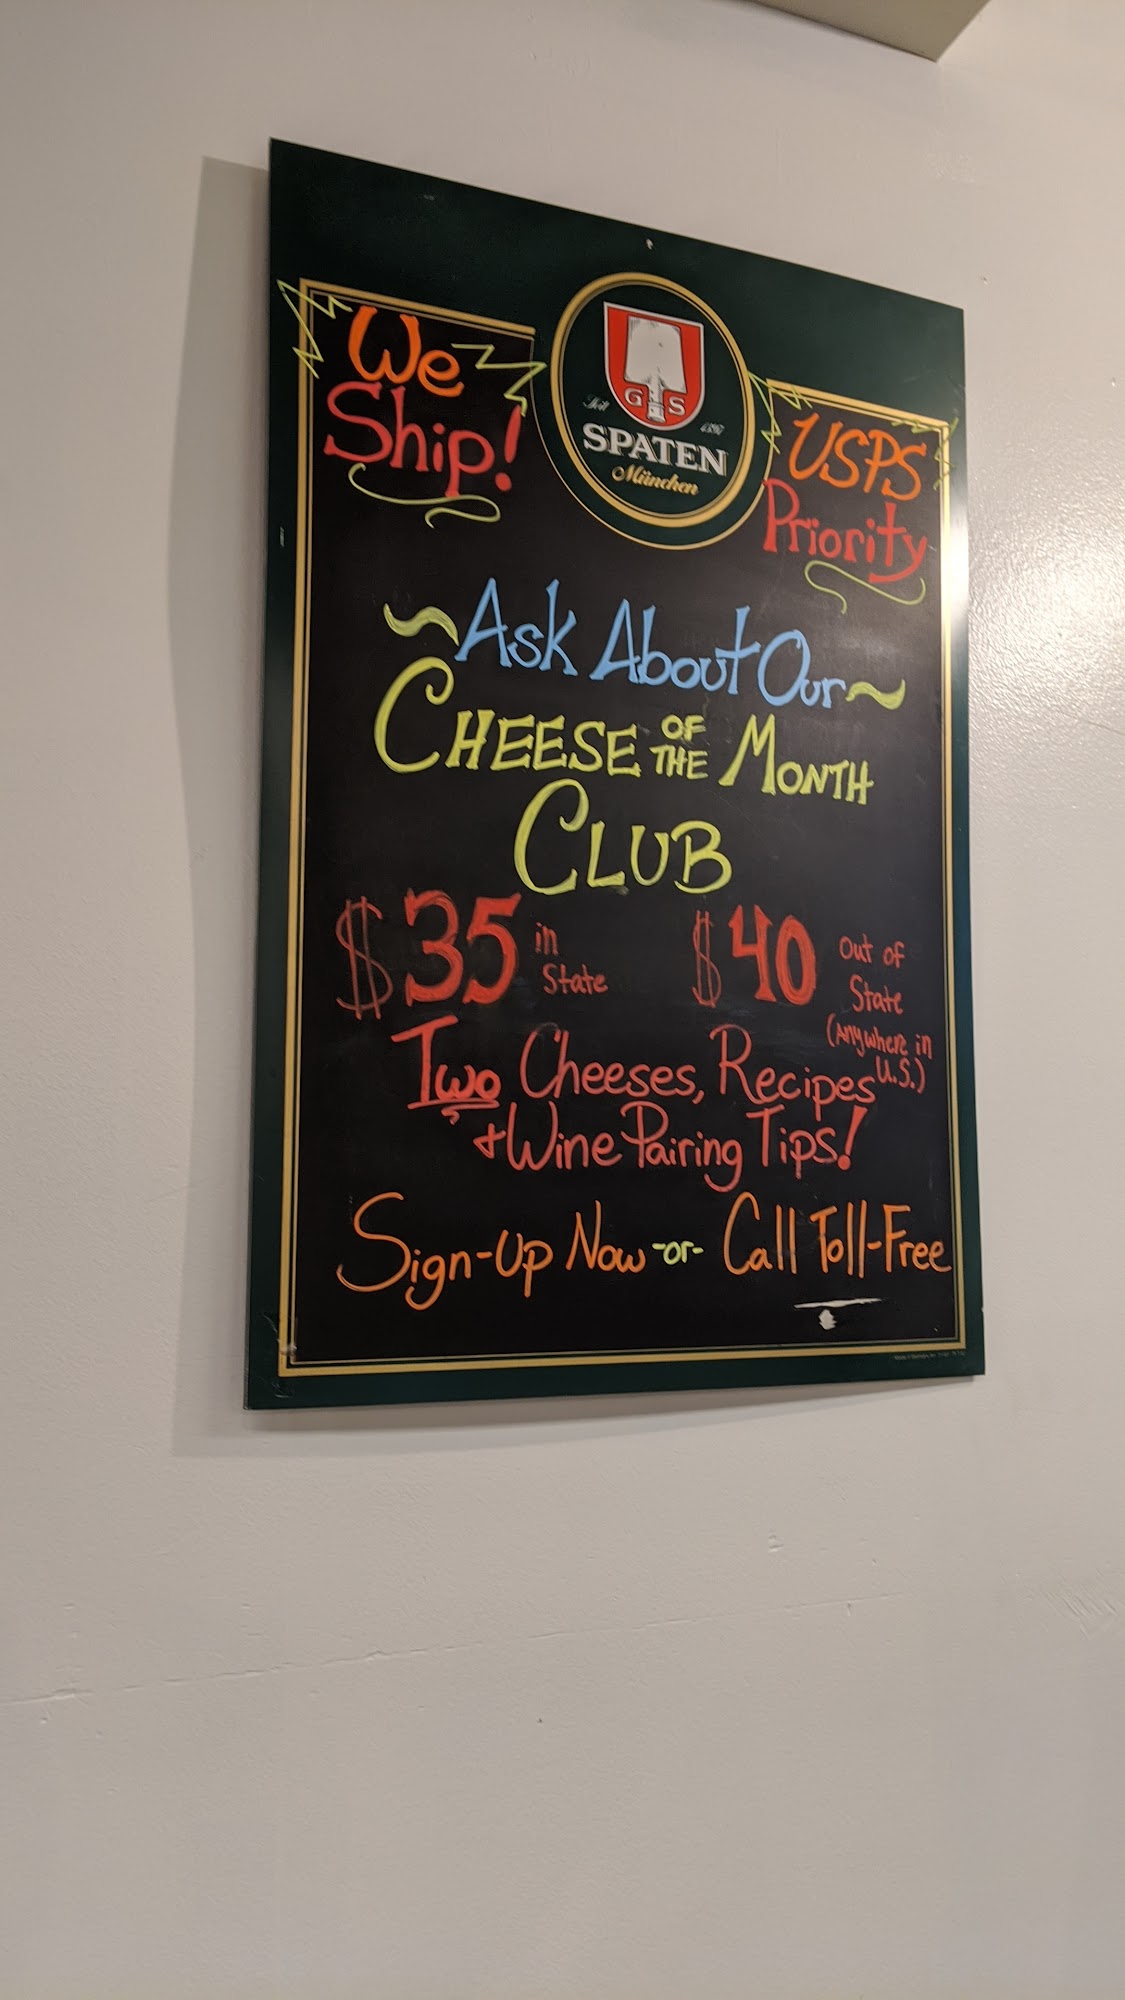 We
Ship!
G S
Seit 1397
SPATEN
München
USPS
Priority
~Ask About Our~
CHEESE OF THE MONTH
CLUB
$35 in State
$40 out of State
(Anywhere in U.S.)
Two Cheeses, Recipes
+ Wine Pairing Tips!
Sign-Up Now -or- Call Toll-Free